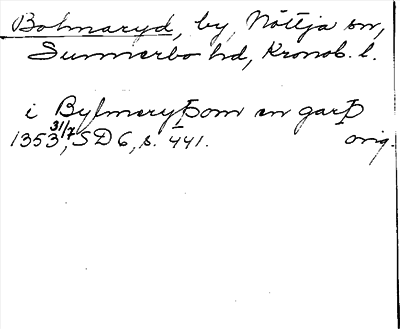 Bohmaryd, by, Nöttja sn,
Sunnerbo hd, Kronob. l.
i BylmeryÞom en garÞ
1353 31/7, SD 6, s. 441. orig.